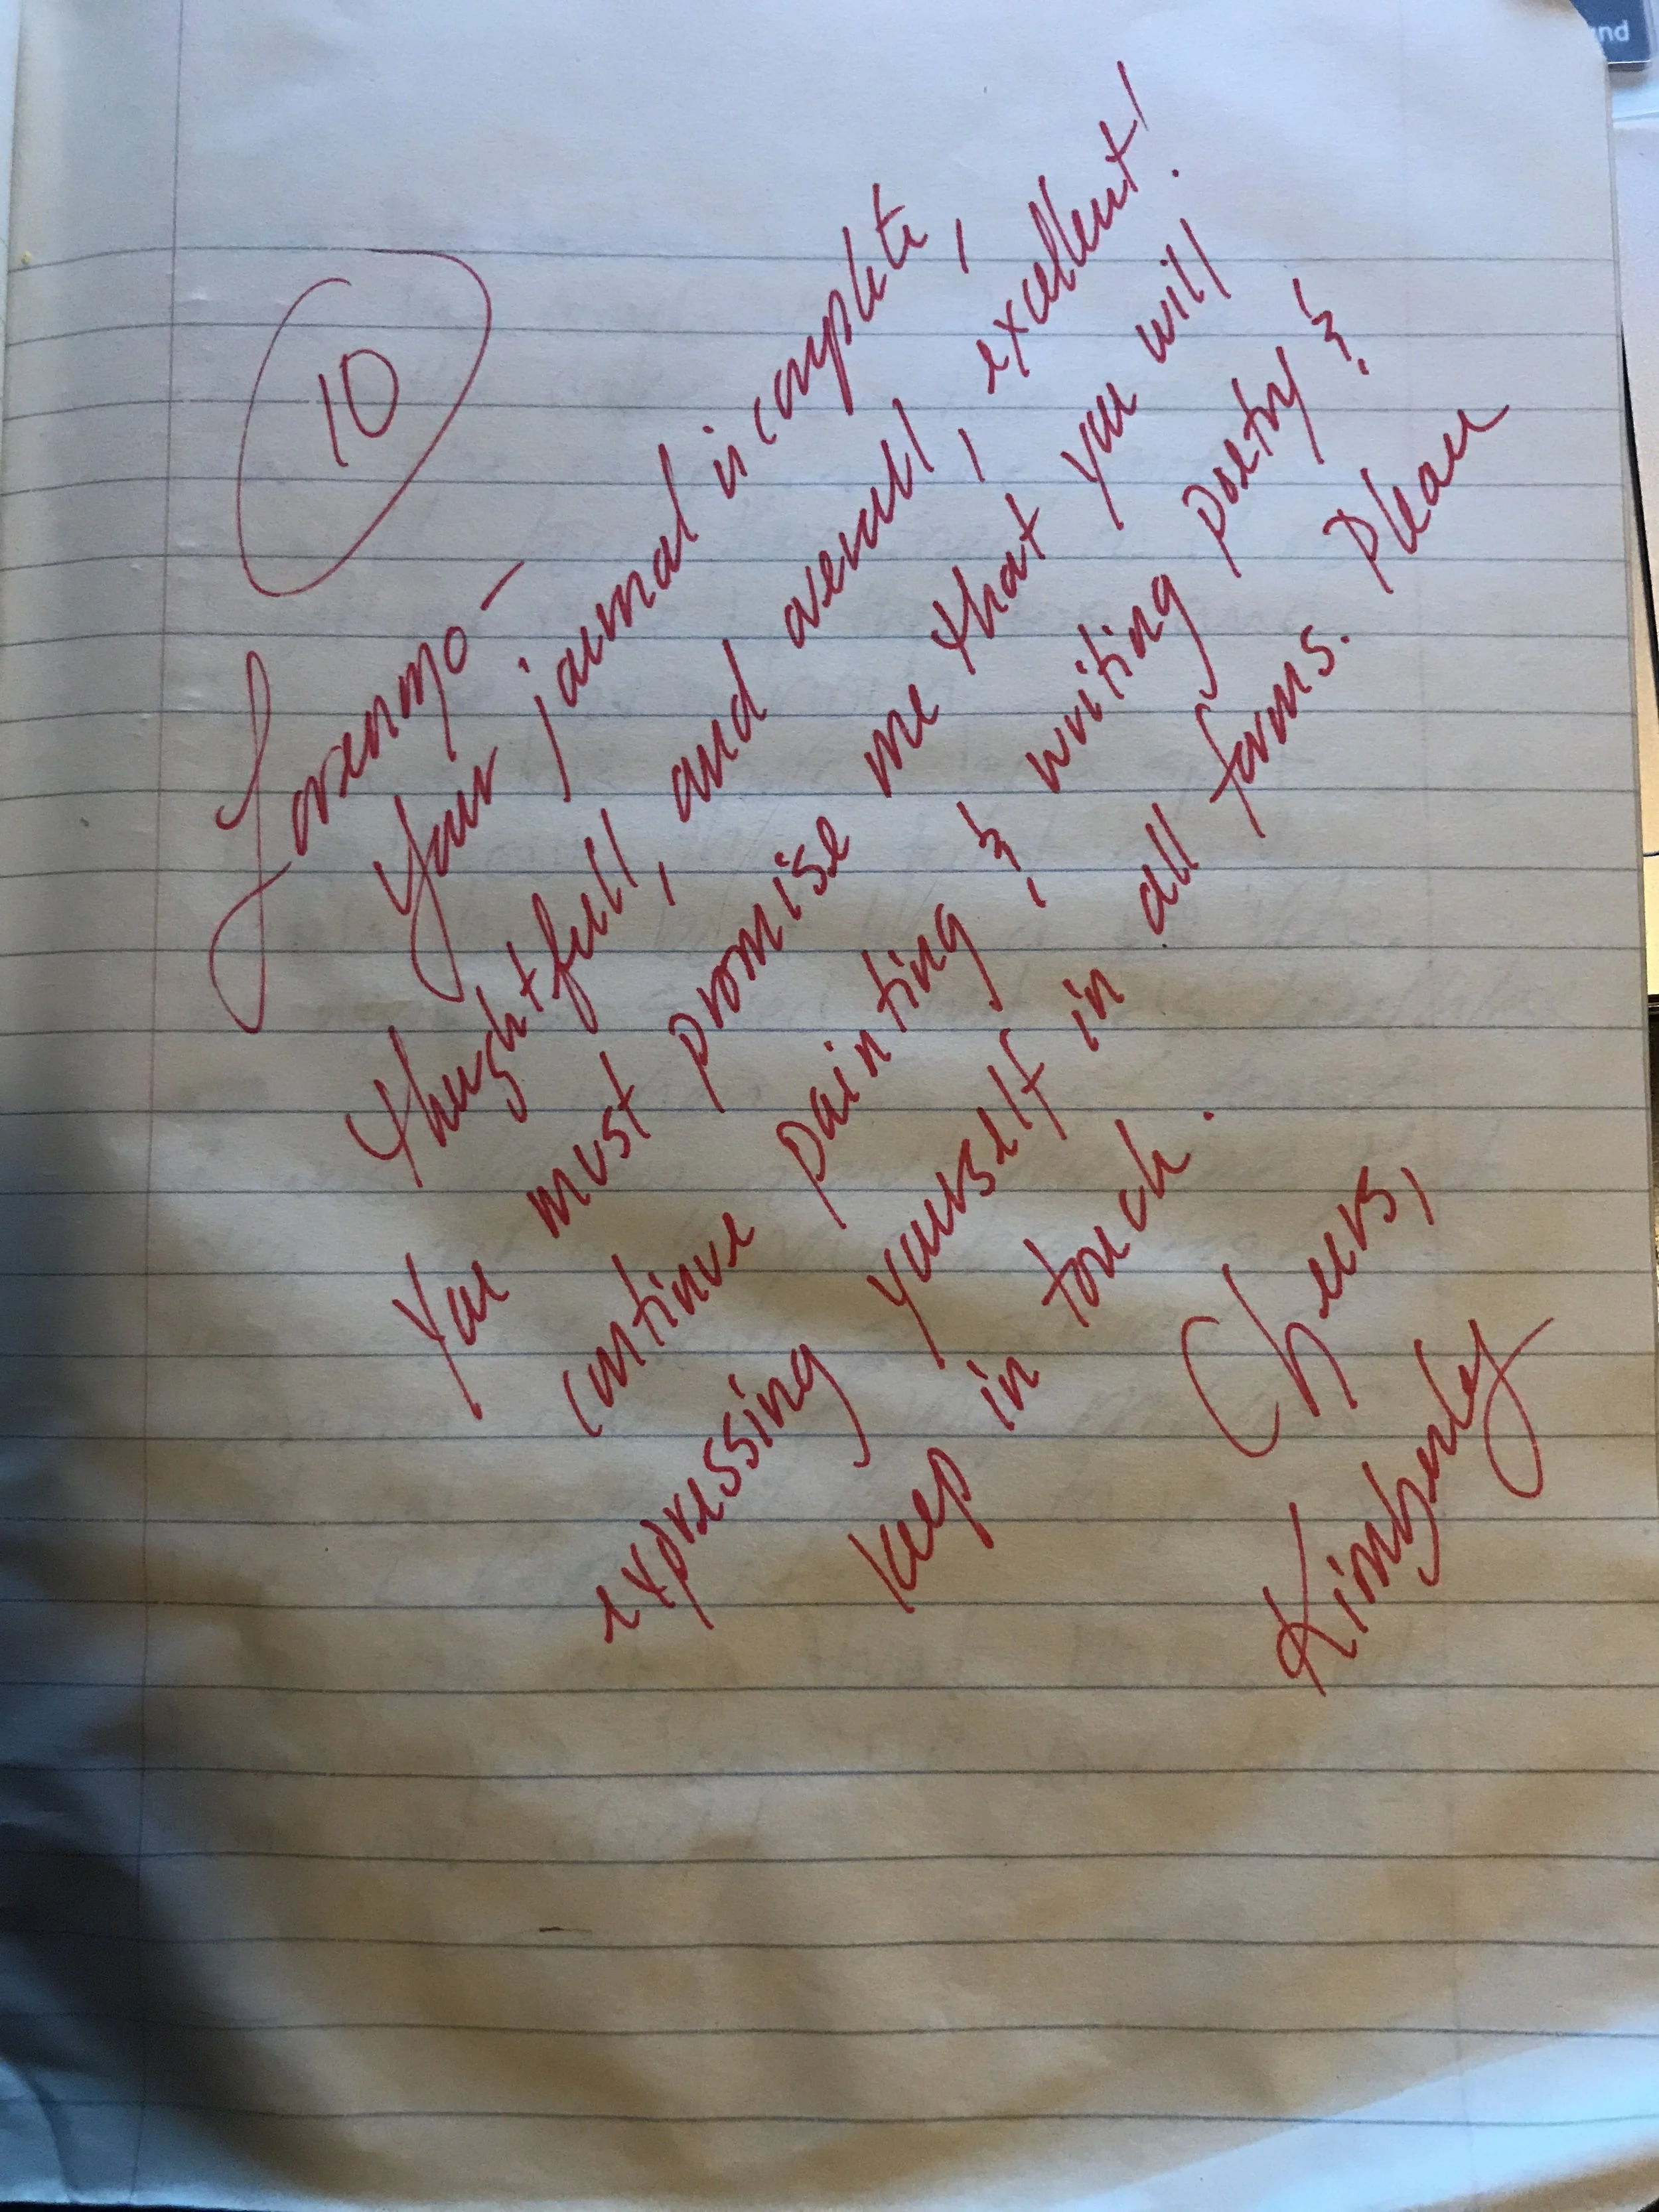 10
Lorenzo –
Your journal is complete,
thughtfull, and overall, excellent!
You must promise me that you will
continue painting & writing poetry &
expressing yourself in all forms. Please
keep in touch.
Cheers,
Kimberly
nd